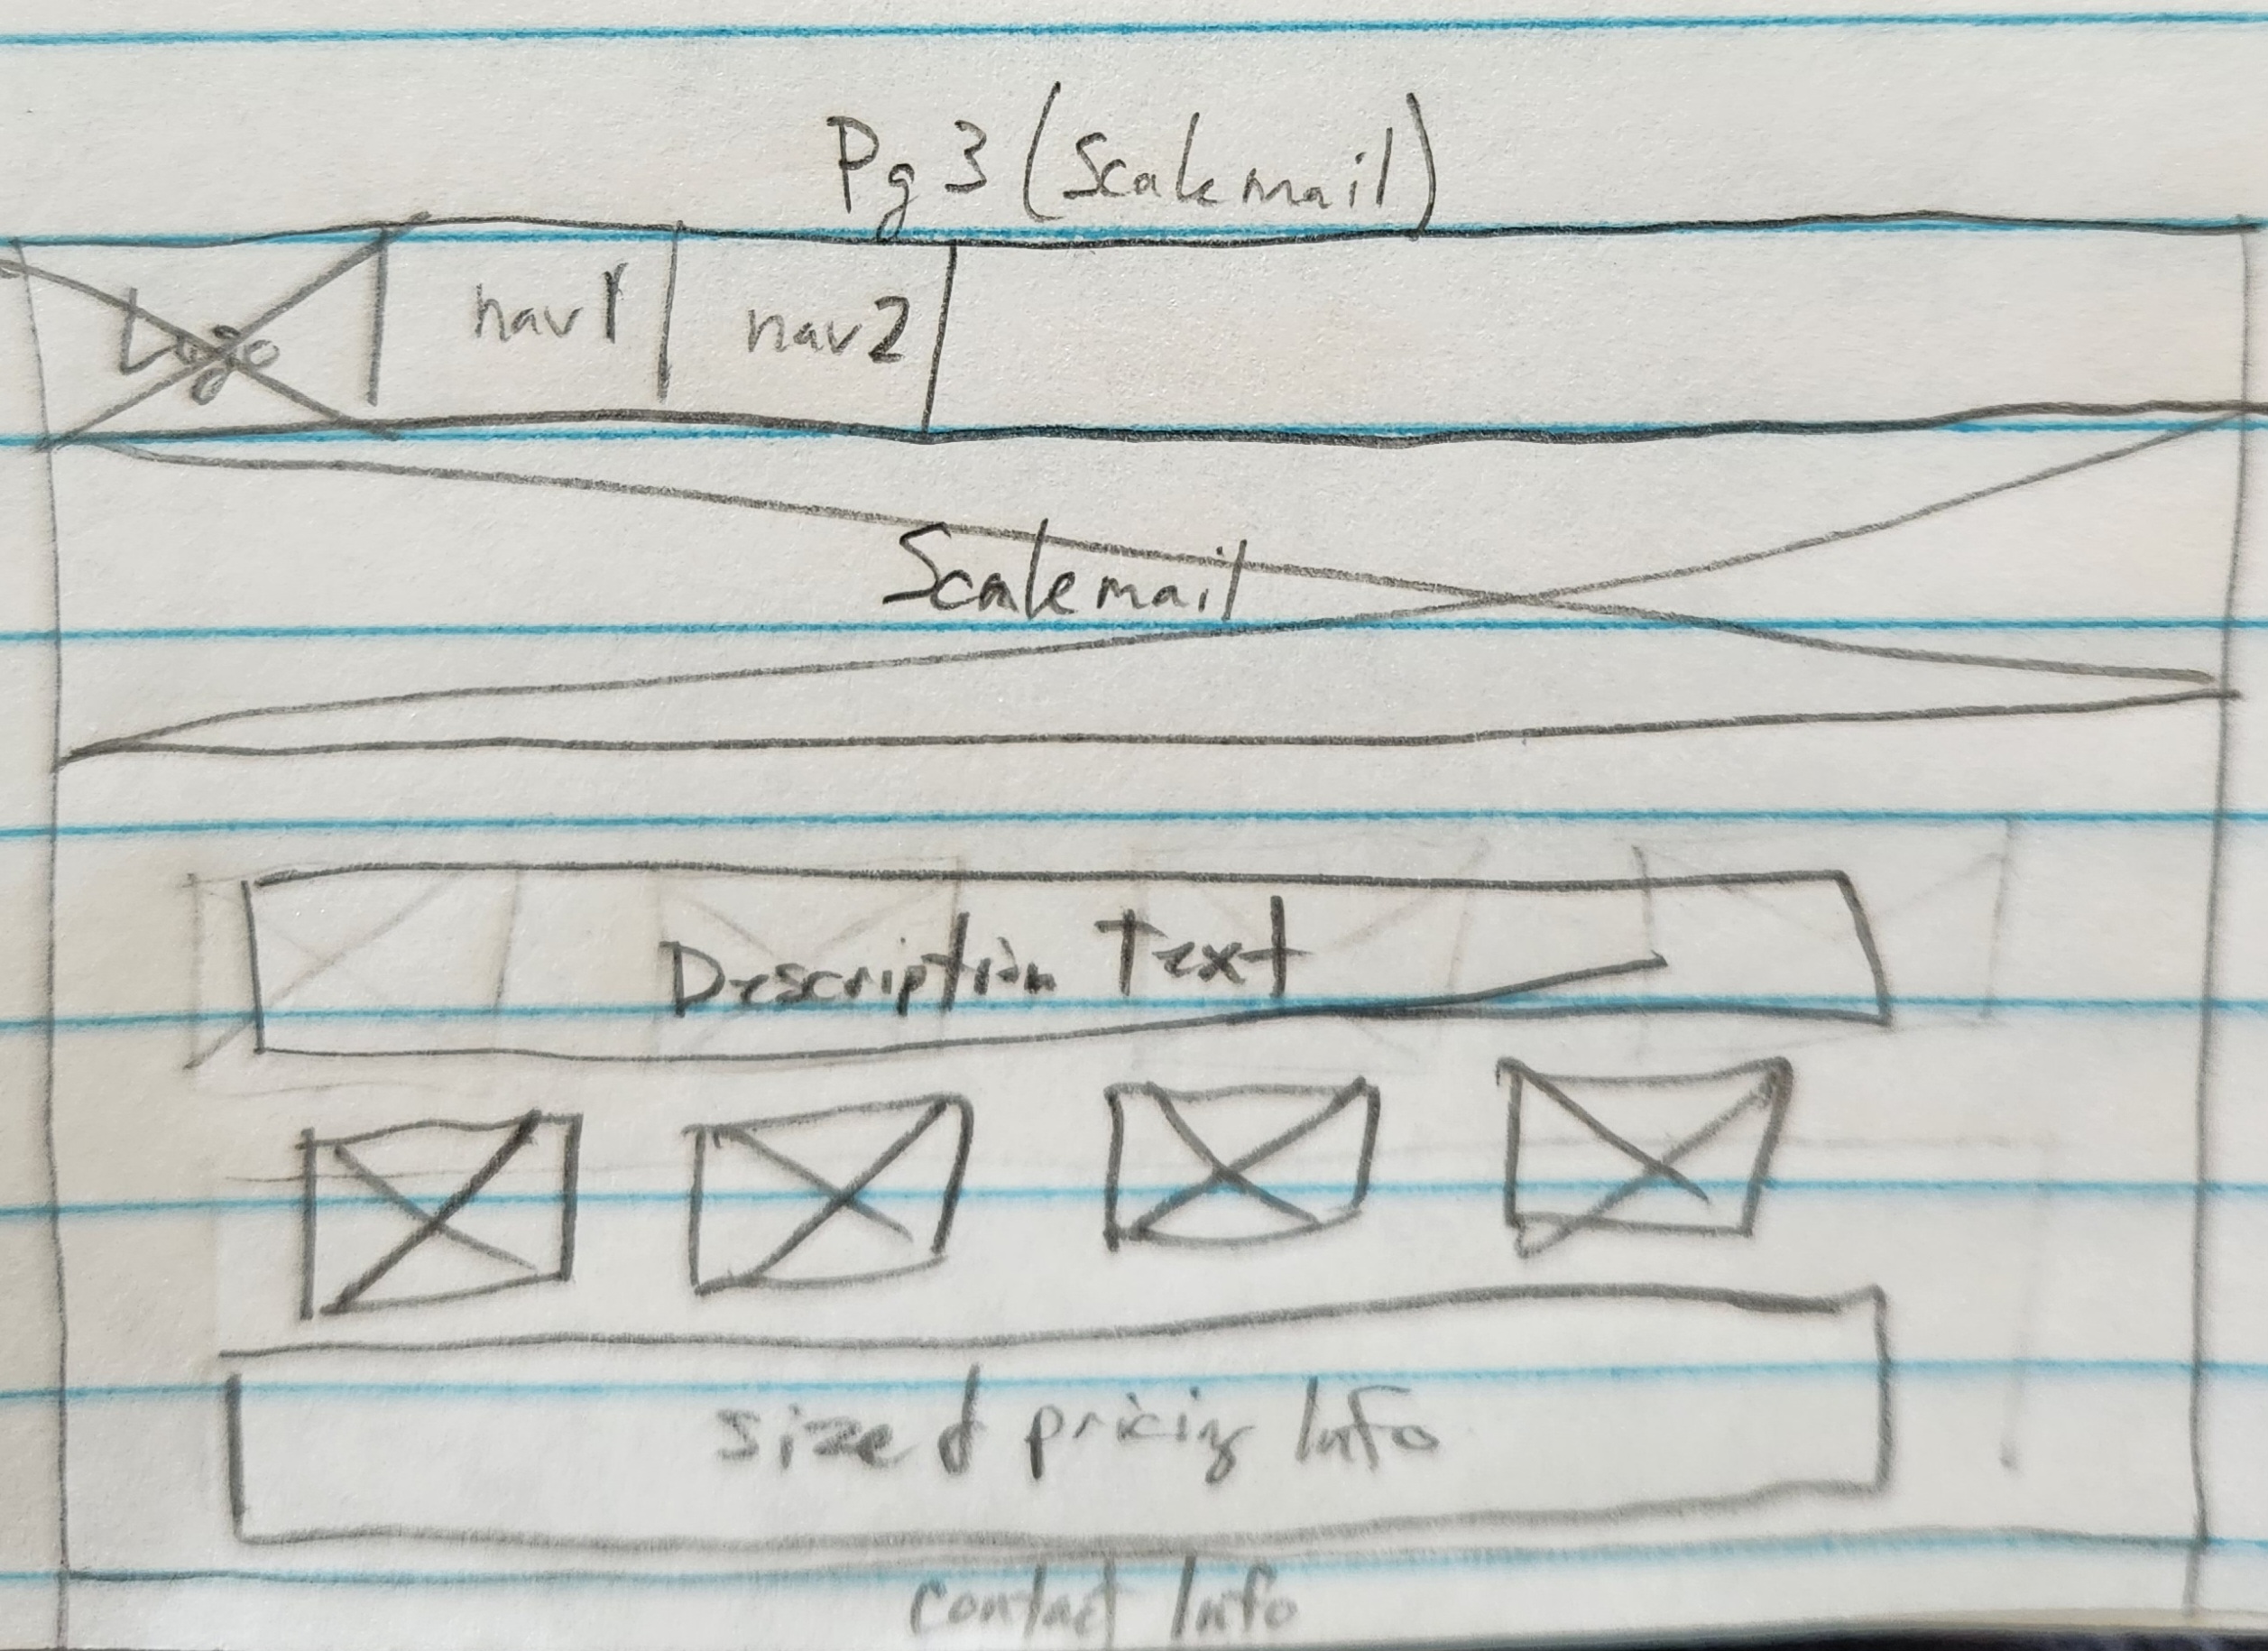 Pg 3 (Scalemail)
Logo nav1 nav2
Scalemail
Description Text
Size & pricing Info
Contact Info